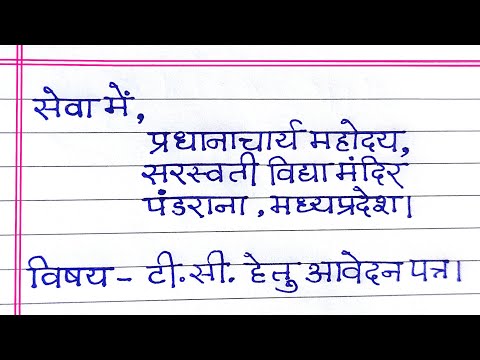 सेवा में,
प्रधानाचार्य महोदय,
सरस्वती विद्या मंदिर
पंडराना, मध्यप्रदेश।
विषय - टी.सी. हेतु आवेदन पत्र।